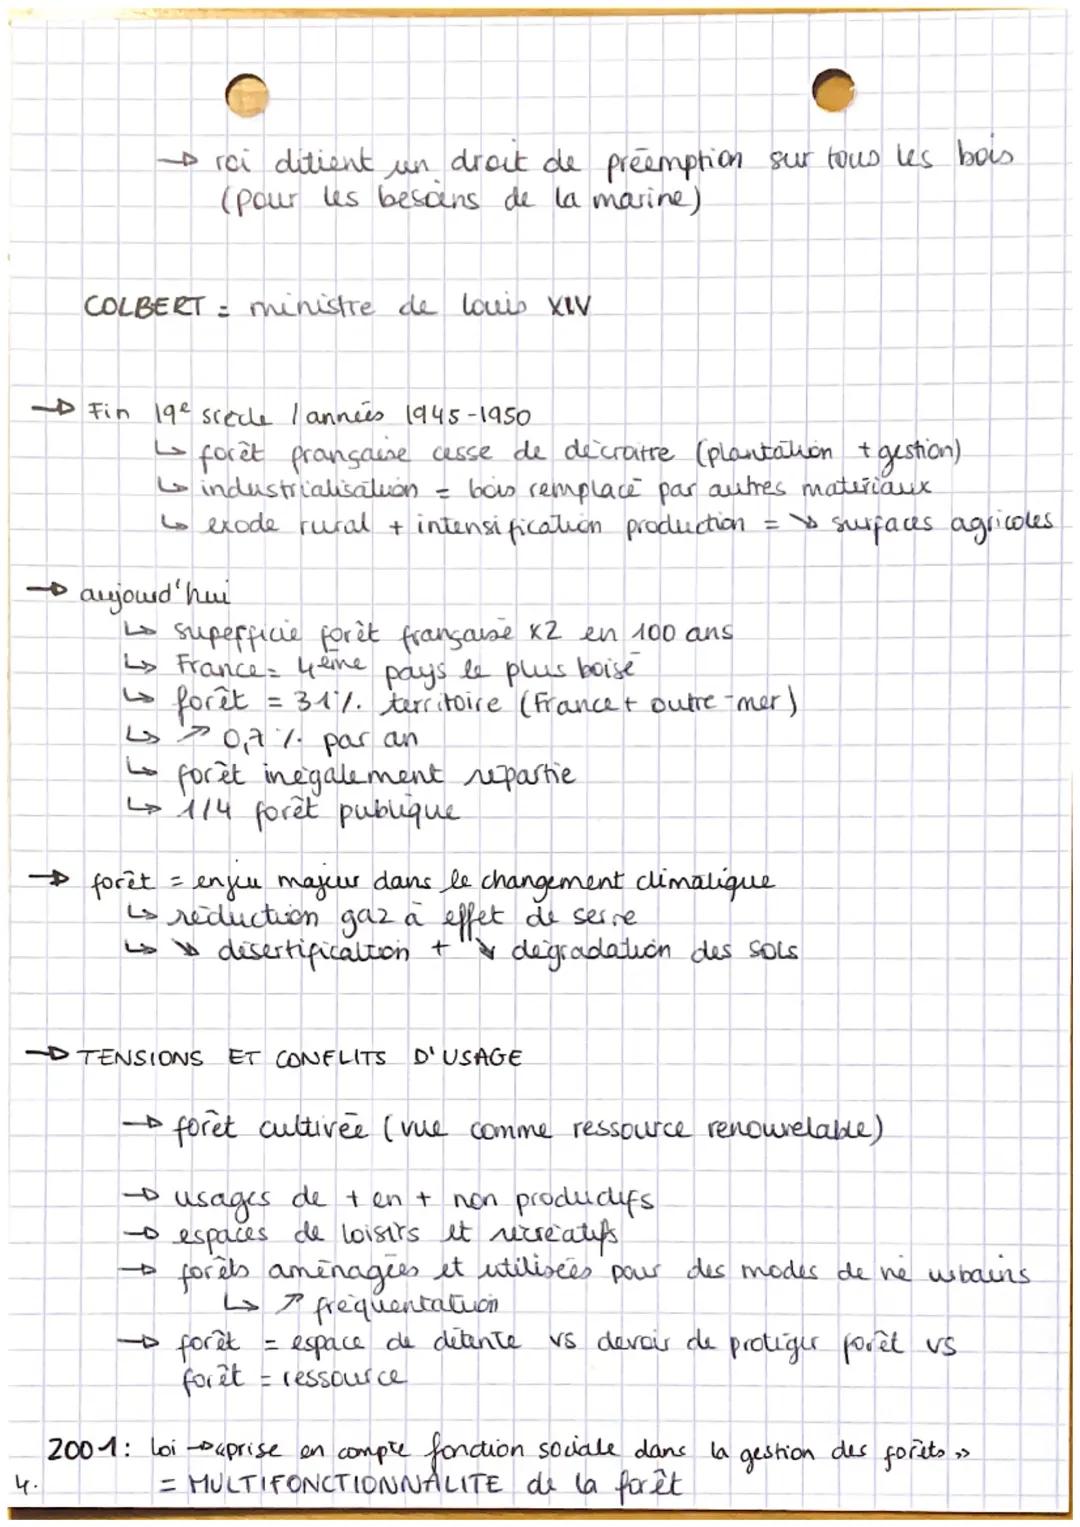 → roi détient un droit de préemption sur tous les bois
(pour les besoins de la marine)
COLBERT = ministre de Louis XIV
→ Fin 19e siècle / années 1945-1950
↳ forêt française cesse de décroître (plantation + gestion)
↳ industrialisation = bois remplacé par autres matériaux
↳ exode rural + intensification production = ↘ surfaces agricoles
→ aujourd'hui
↳ superficie forêt française x2 en 100 ans
↳ France = 4ème pays le plus boisé
↳ forêt = 31% territoire (France + outre-mer)
↳ ↗ 0,7 % par an
↳ forêt inégalement répartie
↳ 1/4 forêt publique
→ forêt = enjeu majeur dans le changement climatique
↳ réduction gaz à effet de serre
↳ ↘ désertification + ↘ dégradation des sols
→ TENSIONS ET CONFLITS D'USAGE
→ forêt cultivée (vue comme ressource renouvelable)
→ usages de + en + non productifs
→ espaces de loisirs et récréatifs
→ forêts aménagées et utilisées pour des modes de vie urbains
↳ ↗ fréquentation
→ forêt = espace de détente vs devoir de protéger forêt vs
forêt = ressource
2001 : loi → « prise en compte fonction sociale dans la gestion des forêts »
4. = MULTIFONCTIONNALITE de la forêt